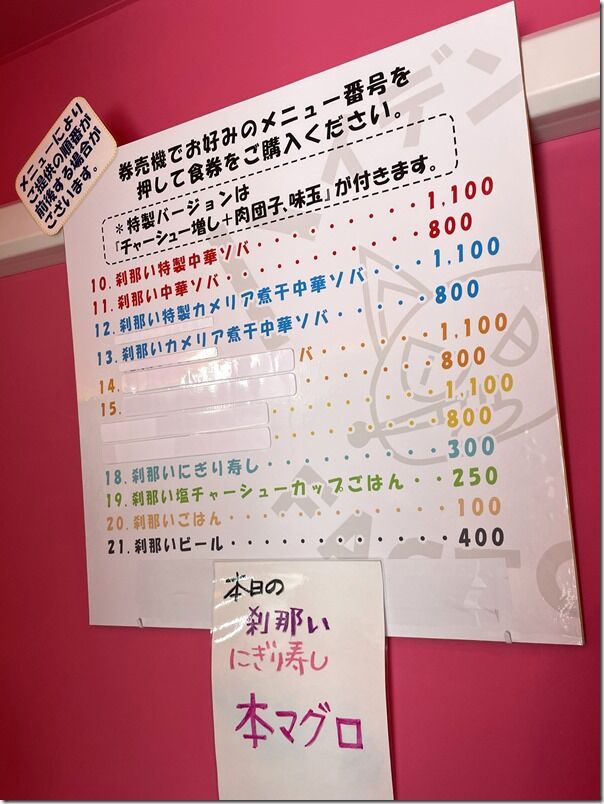 メニューにより
ご提供の順番が
前後する場合が
ございます。
券売機でお好みのメニュー番号を
押して食券をご購入ください。
＊特製バージョンは
「チャーシュー増し＋肉団子、味玉」が付きます。
10. 刹那い特製中華ソバ・・・・・・・・・1,100
11. 刹那い中華ソバ・・・・・・・・・・・800
12. 刹那い特製カメリア煮干中華ソバ・・・1,100
13. 刹那いカメリア煮干中華ソバ・・・・・800
14. バ・・・・・・1,100
15. ・・・・・・・800
・・・・・・・1,100
・・・・・・・800
18. 刹那いにぎり寿し・・・・・・・・・300
19. 刹那い塩チャーシューカップごはん・・250
20. 刹那いごはん・・・・・・・・・・・100
21. 刹那いビール・・・・・・・・・・・400
本日の
刹那い
にぎり寿し
本マグロ